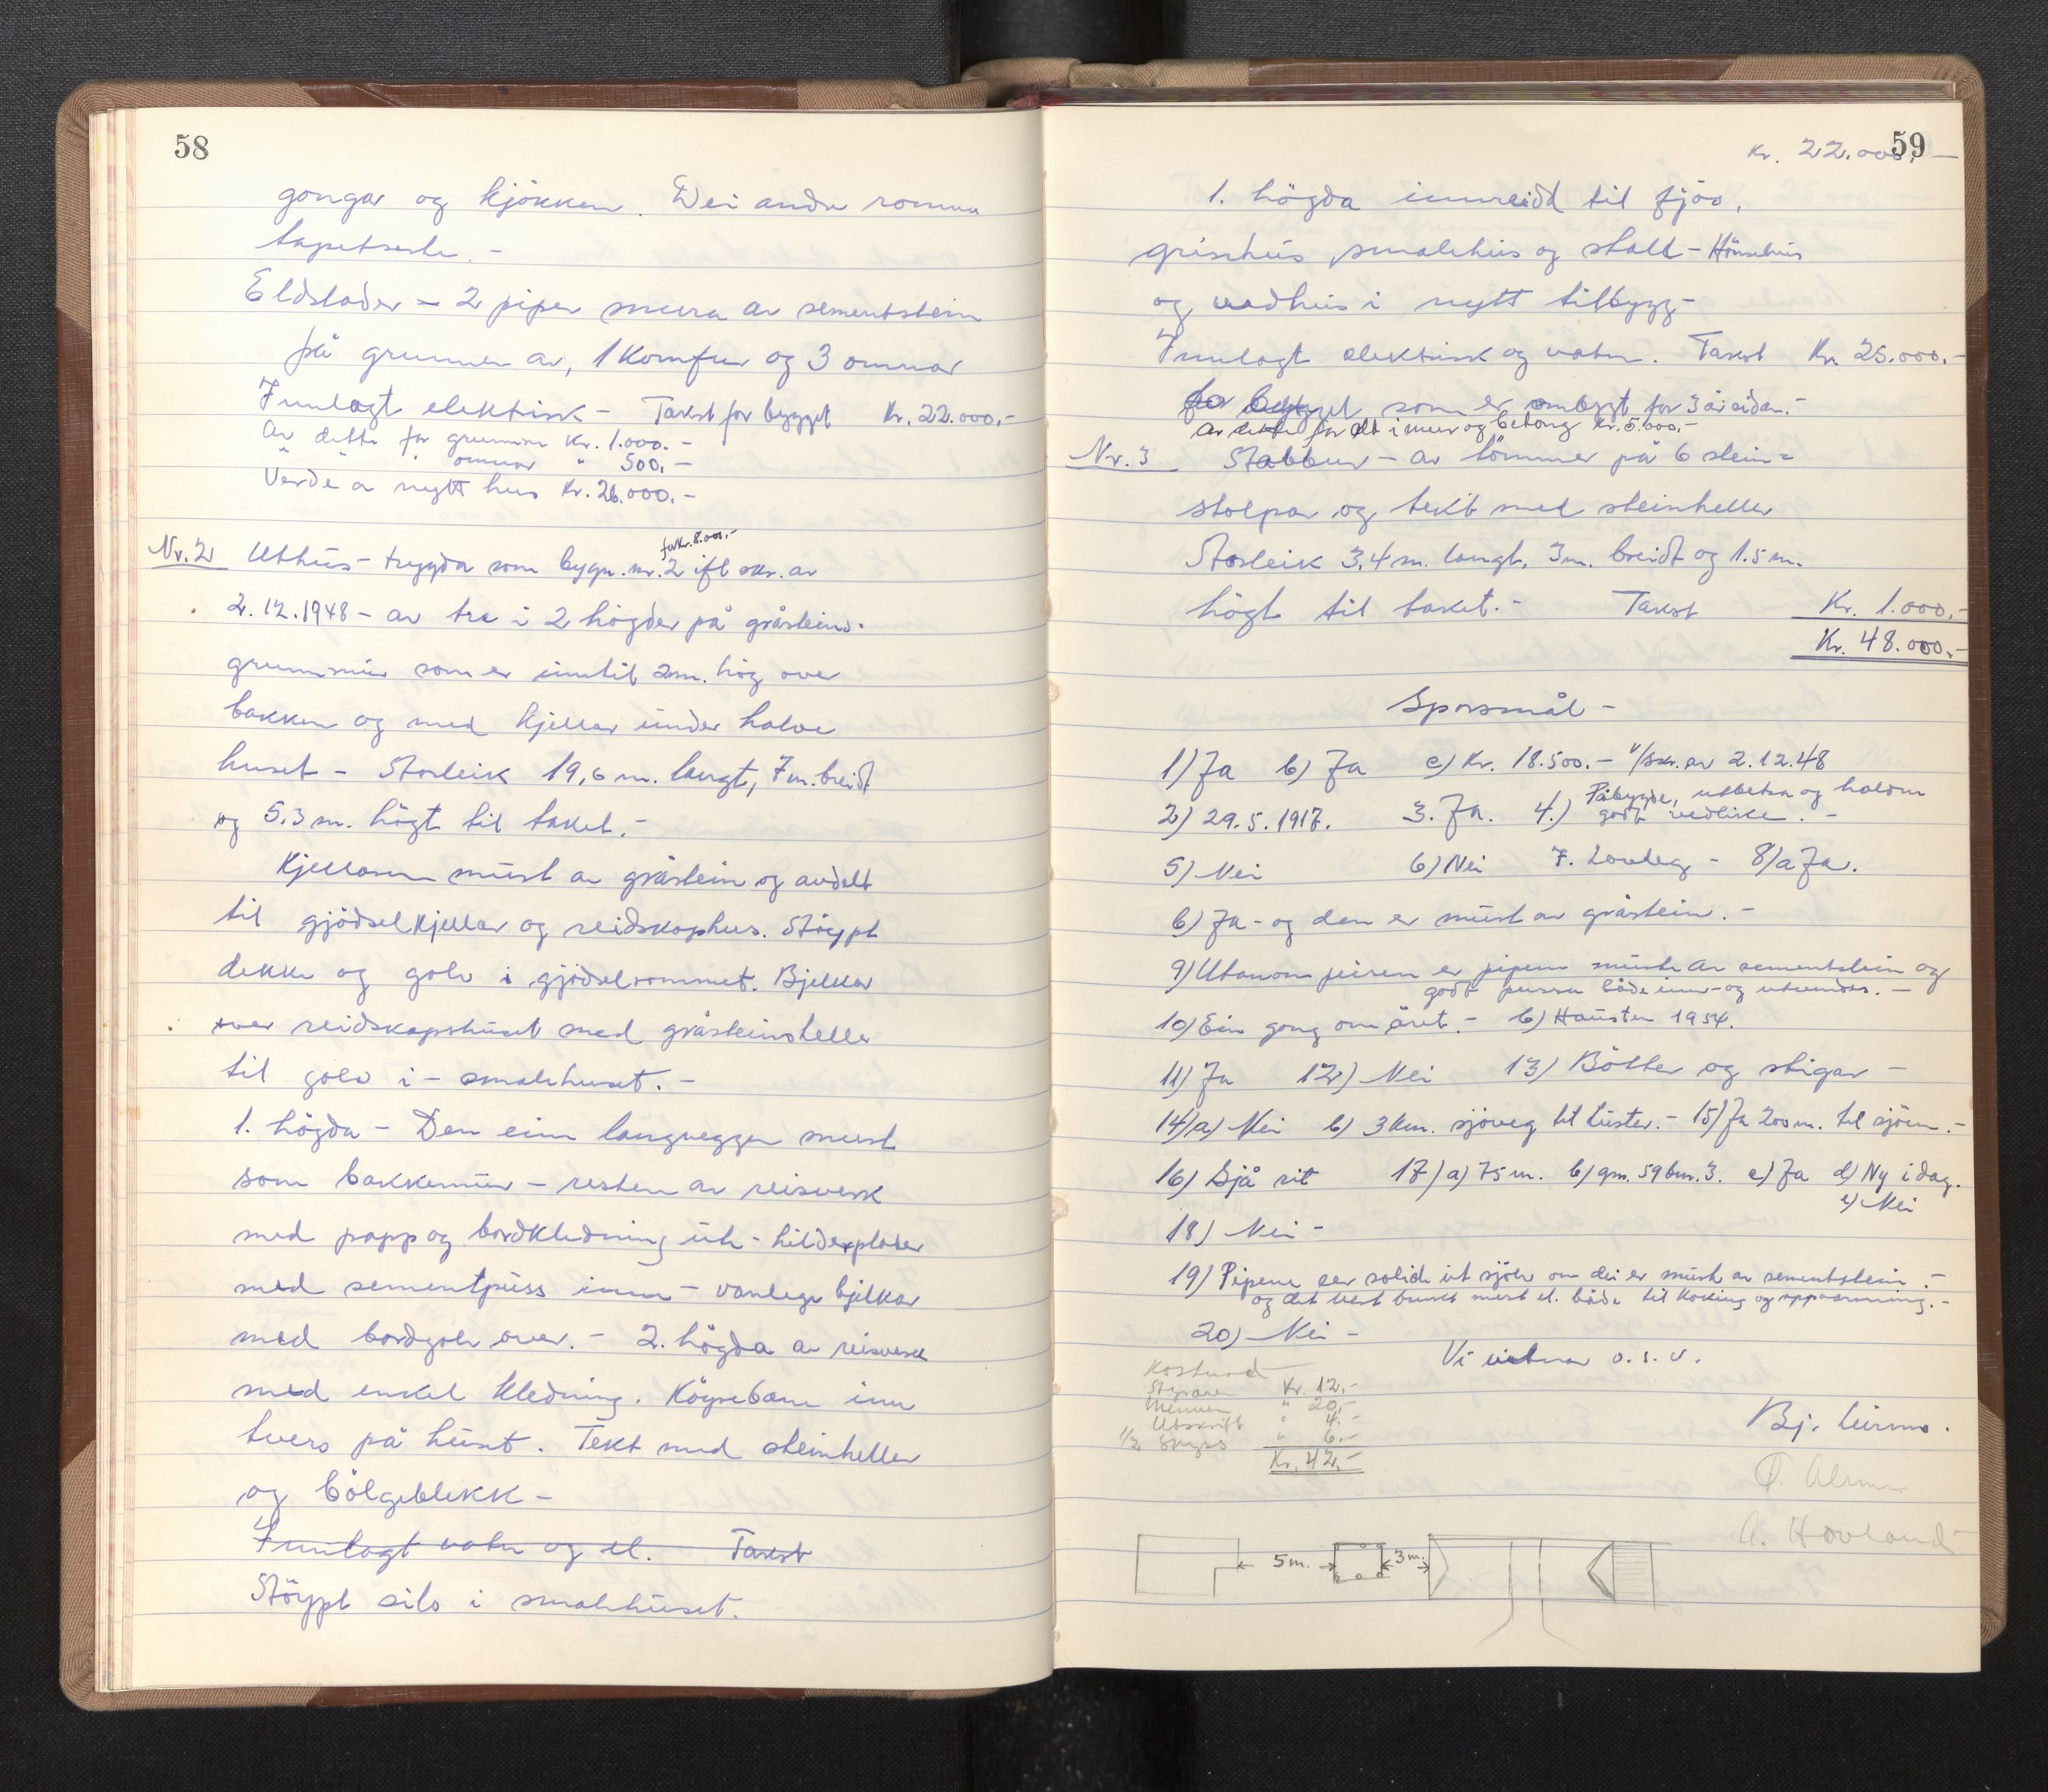 58
gongar og kjökken. Dei andre romma
tapetserte. -
Eldstader - 2 piper mura av sementstein
på grunnen av, 1 Komfur og 3 omnar
Innlagt elektrisk - Takst for bygget Kr. 22.000.-
Av dette for grunnm Kr. 1.000.-
" " " omnar " 500.-
Verde a nytt hus Kr. 26.000.-
for Kr. 8.000.-
Nr. 2 Uthus - trygda som bygn. nr. 2 ifl skr. av
2.12.1948 - av tre i 2 högder på gråsteins-
grunnmur som er inntil 2m. hög over
bakken og med kjellar under halve
huset - Storleik 19,6 m. langt, 7 m. breidt
og 5.3 m. högt til taket.-
Kjellaren murt av gråstein og avdelt
til gjödselkjellar og reidskaphus. Stöypt
dekke og golv i gjödselrommet. Bjelkar
over reidskapshuset med gråsteinsheller
til golv i - smalehuset. -
1. högda - Den eine langveggen murt
som bakkemur - resten av reisverk
med papp og bordkledning ute - hilderplater
med sementpuss inne - vanlege bjelkar
med bordgolv over. - 2. högda av reisverk
med enkel kledning. Köyrebane inn
tvers på huset. Tekt med steinheller
og bölgeblekk -
Innlagt vatn og el. Takst
Stöypt silo i smalehuset.
59
Kr. 22.000.-
1. högda innreidd til fjös,
grisehus, smalehus og stall - Hönsehus
og vedhus i nytt tilbygg -
Innlagt elektrisk og vatn. Takst Kr. 25.000.-
for bygget som er ombygt for 3 år sidan.-
Av dette for alt i mur og betong Kr. 5.000.-
Nr. 3 Stabbur - av tömmer på 6 stein=
stolpar og tekt med steinheller
Storleik 3,4 m. langt, 3m. breidt og 1.5 m.
högt til taket. - Takst Kr. 1.000.-
Kr. 48.000.-
Sporsmål -
1) Ja b) Ja c) Kr. 18.500.- v/skr. av 2.12.48
2) 29.5.1917. 3. Ja. 4.) Påbygde, utbetra og haldne
godt vedlike. -
5) Nei 6) Nei 7. Lovleg - 8/a Ja.
b) Ja - og den er murt av gråstein. -
9) Utanom peisen er pipene murte av sementstein og
godt pussa både inn- og utvendes. -
10) Ein gong om året. - b) Hausten 1954.
11) Ja 12) Nei 13) Bötter og stigar -
14/a) Nei b) 3 km. sjöveg til Luster. - 15) Ja 200 m. til sjöen. -
16) Sjå rit 17) a) 75 m. b) gm. 59 bm. 3. c) Ja d) Ny i dag.
e) Nei
18) Nei -
19) Pipene ser solide ut sjölv om dei er murte av sementstein. -
og det vert brukt mest el. både til koking og oppvarming. -
20) Nei -
Vi vitnar o.s.v.
Kostnad
Styraren Kr. 12.-
Mennen " 20.-
Utskrift " 4.-
1/2 Skyss " 6.-
Kr. 42.-
Bj.
A. Hovland
5 m. 3 m.